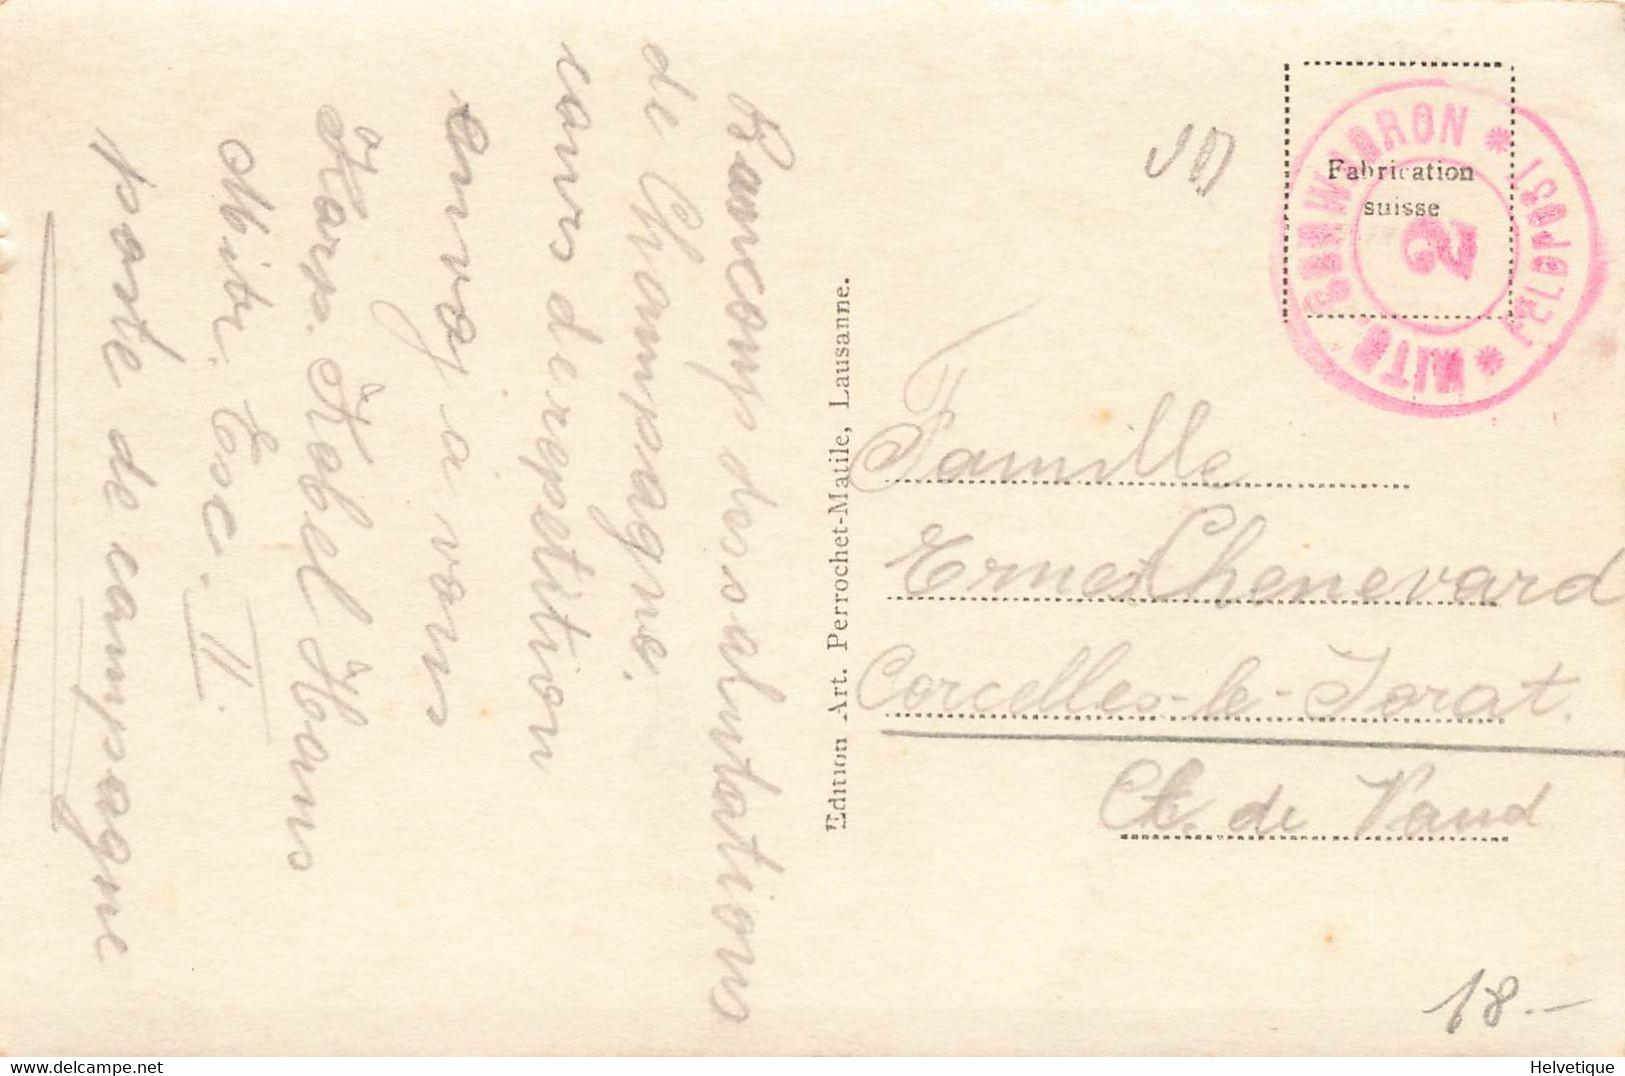 Baucoup des salutations
de Champagne.
cours de repetition
envoj a vous
Korp. Kobel Hans
Mitr. Esc. II.
poste de campagne
Edition Art. Perrochet-Matile, Lausanne.
Fabrication
suisse
MITR. * FELDPOST *
2
Famille
Ernest Chenevard
Corcelles-le-Jorat.
Ct. de Vaud
18.-
delcampe.net
Helvetique